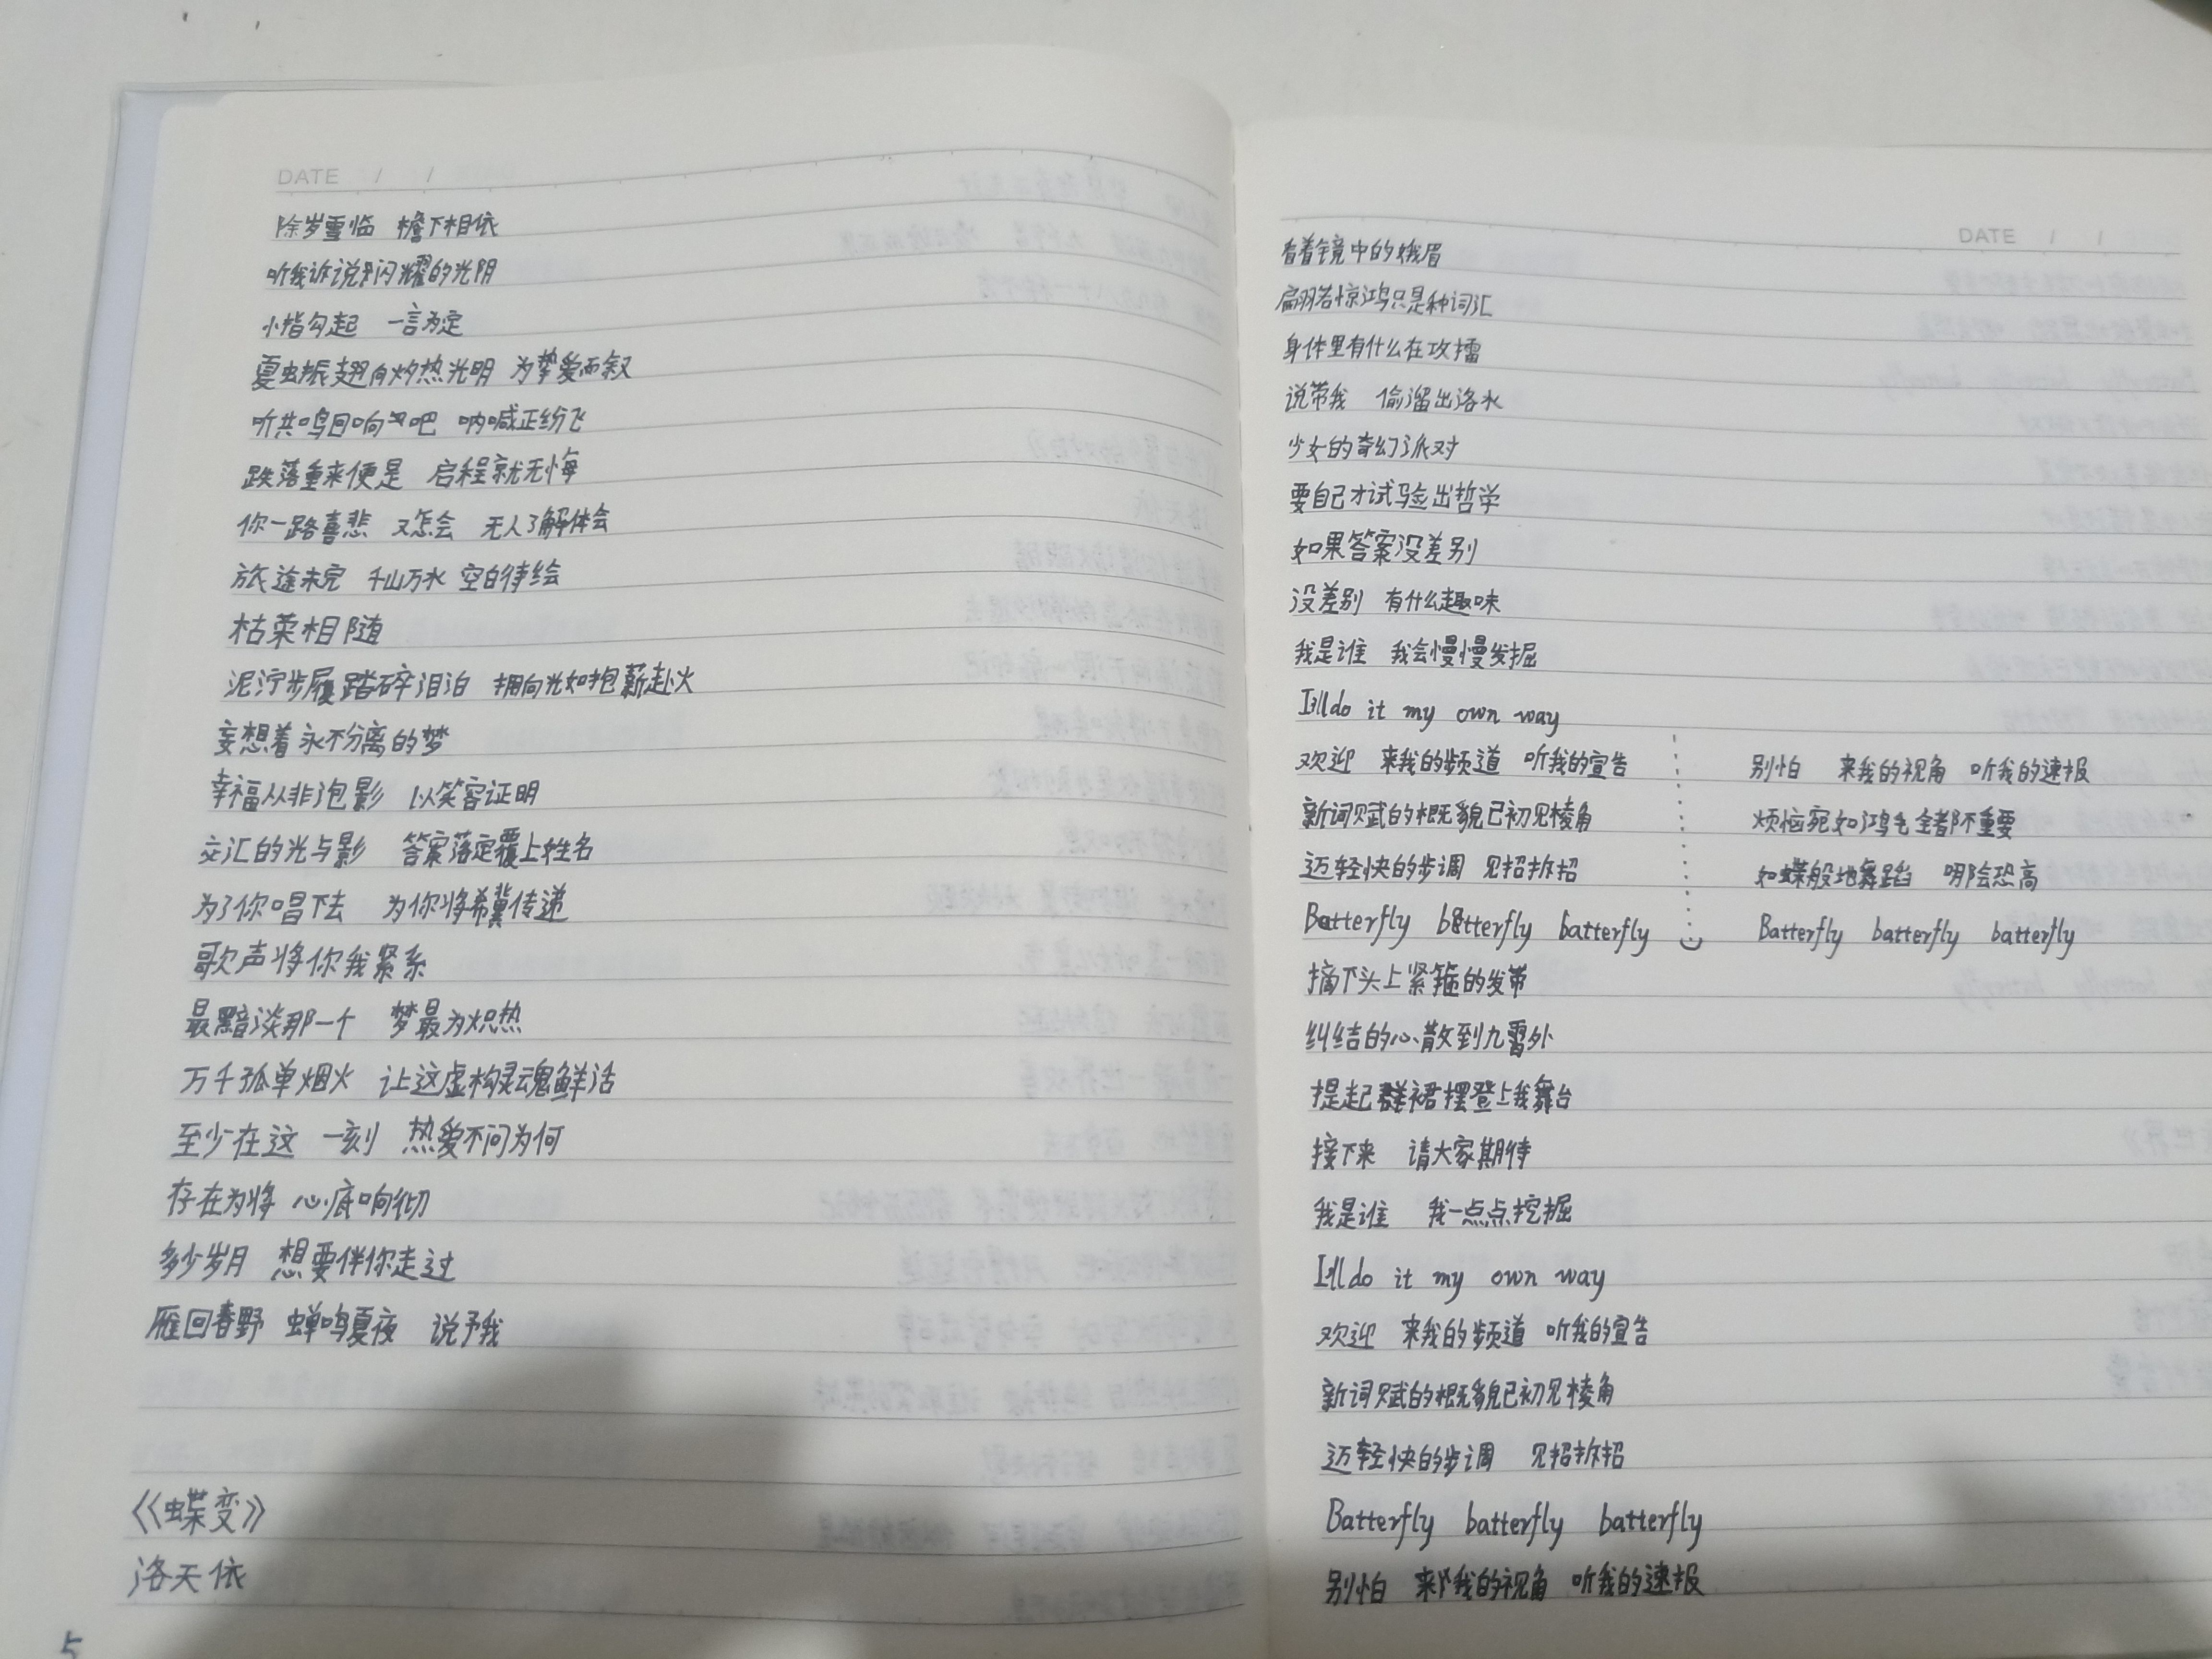 DATE / /
除岁重临 檐下相依
听我诉说闪耀的光阴
小指勾起 一言为定
夏虫振翅向灼热光明 为挚爱而叙
听共鸣回响吧 呐喊正纷飞
跌落重来便是 启程就无悔
你一路喜悲 又怎会 无人了解体会
旅途未完 千山万水 空白待绘
枯荣相随
泥泞步履踏碎泪泊 拥向光如抱薪赴火
妄想着永不分离的梦
幸福从非泡影 以笑容证明
交汇的光与影 答案落定覆上姓名
为了你唱下去 为你将希冀传递
歌声将你我紧系
最黯淡那一个 梦最为炽热
万千孤单烟火 让这虚构灵魂鲜活
至少在这 一刻 热爱不问为何
存在为将 心底响彻
多少岁月 想要伴你走过
雁回春野 蝉鸣夏夜 说予我
《蝶变》
洛天依
5
DATE / /
看着镜中的娥眉
翩若惊鸿只是种词汇
身体里有什么在攻擂
说带我 偷溜出洛水
少女的奇幻派对
要自己才试验出哲学
如果答案没差别
没差别 有什么趣味
我是谁 我会慢慢发掘
I'll do it my own way
欢迎 来我的频道 听我的宣告
新词赋的概貌已初见棱角
迈轻快的步调 见招拆招
Batterfly batterfly batterfly
别怕 来我的视角 听我的速报
烦恼宛如鸿毛全都不重要
如蝶般地舞蹈 哪会恐高
Batterfly batterfly batterfly
摘下头上紧箍的发带
纠结的心散到九霄外
提起裙摆登上我舞台
接下来 请大家期待
我是谁 我一点点挖掘
I'll do it my own way
欢迎 来我的频道 听我的宣告
新词赋的概貌已初见棱角
迈轻快的步调 见招拆招
Batterfly batterfly batterfly
别怕 来我的视角 听我的速报